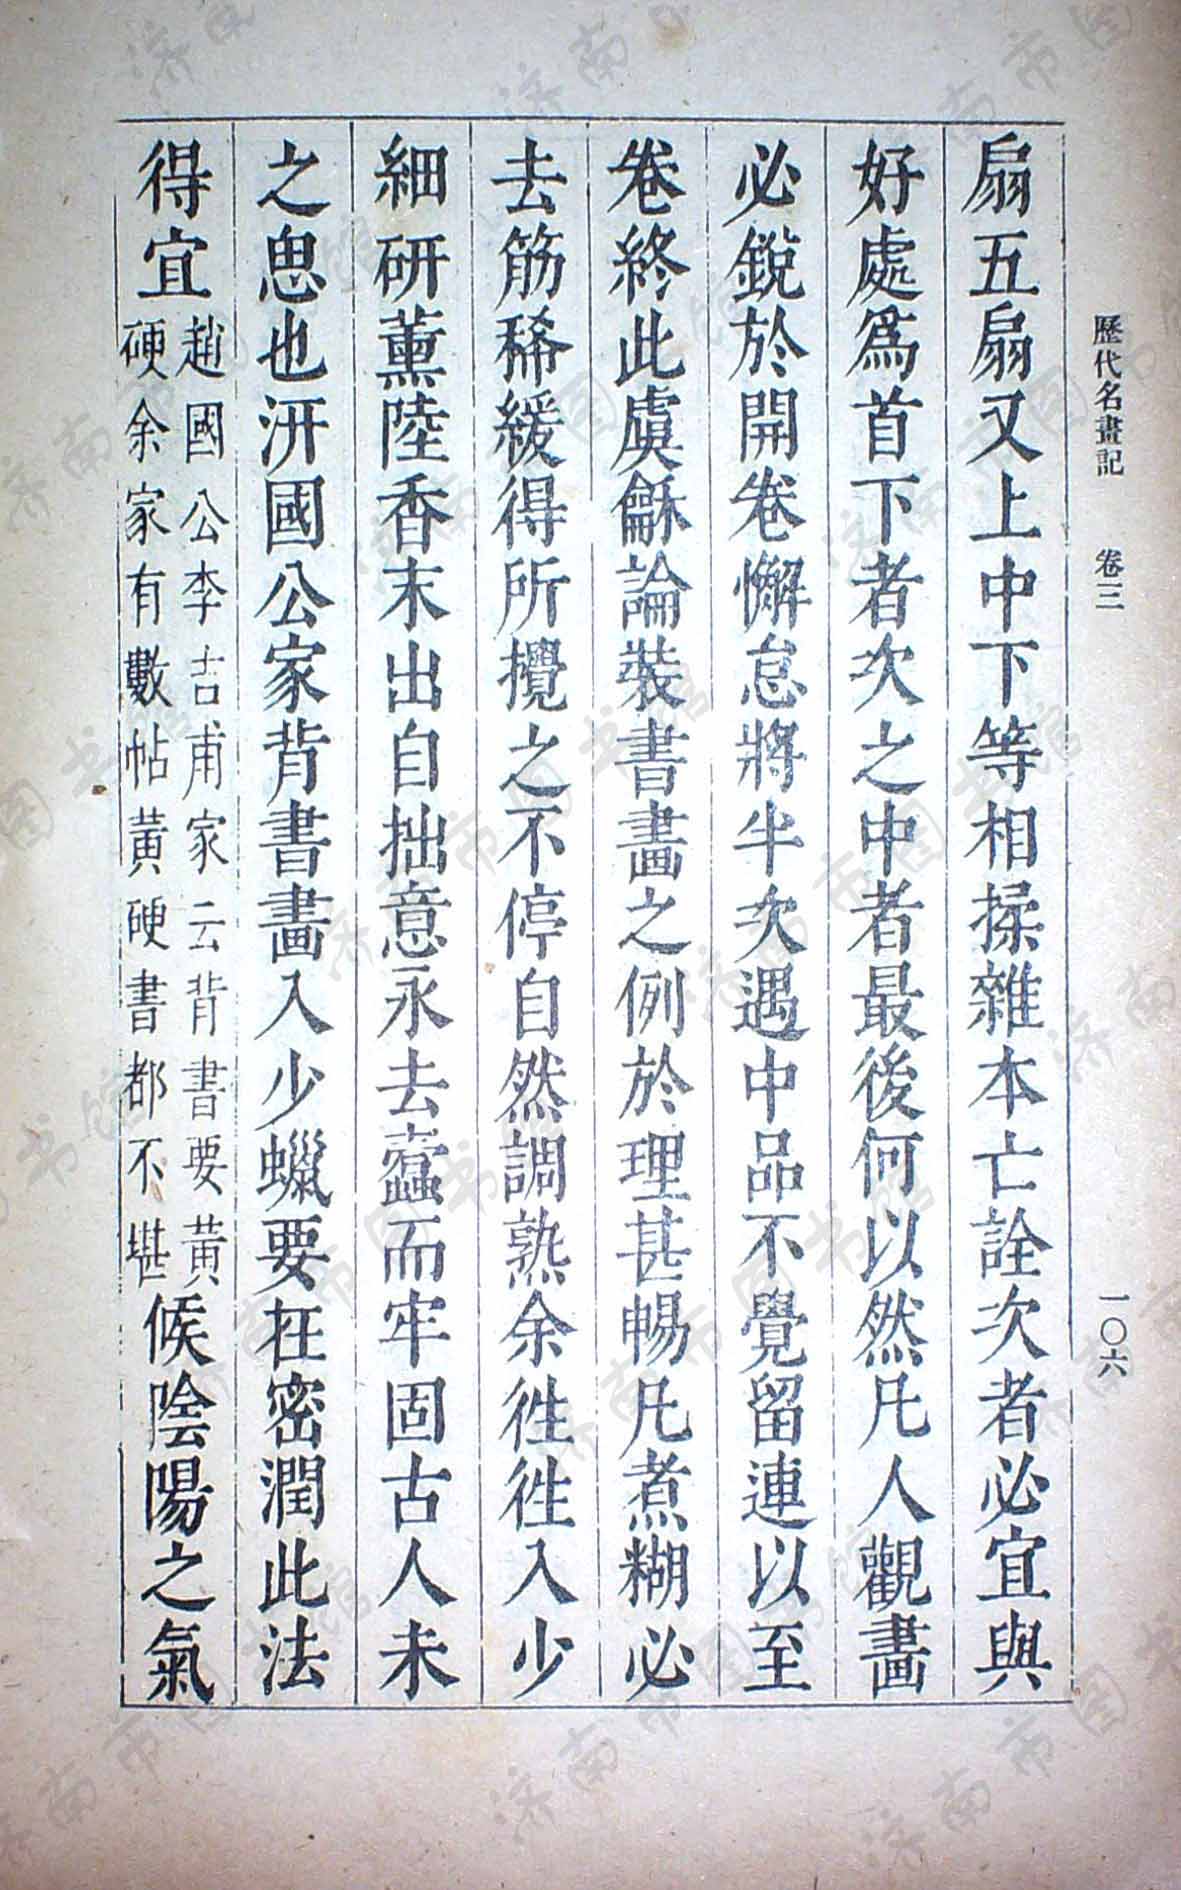 歷代名畫記　卷三　一〇六
扇五扇又上中下等相揉雜本亡詮次者必宜與
好處爲首下者次之中者最後何以然凡人觀畫
必銳於開卷懈怠將半次遇中品不覺留連以至
卷終此虞龢論裝書畫之例於理甚暢凡煮糊必
去筋稀緩得所攪之不停自然調熟余徃徃入少
細研薰陸香末出自拙意永去蠧而牢固古人未
之思也汧國公家背書畫入少蠟要在密潤此法
得宜
趙國公李吉甫家云背書要黃
硬余家有數帖黃硬書都不堪
候陰陽之氣
济南市图书馆